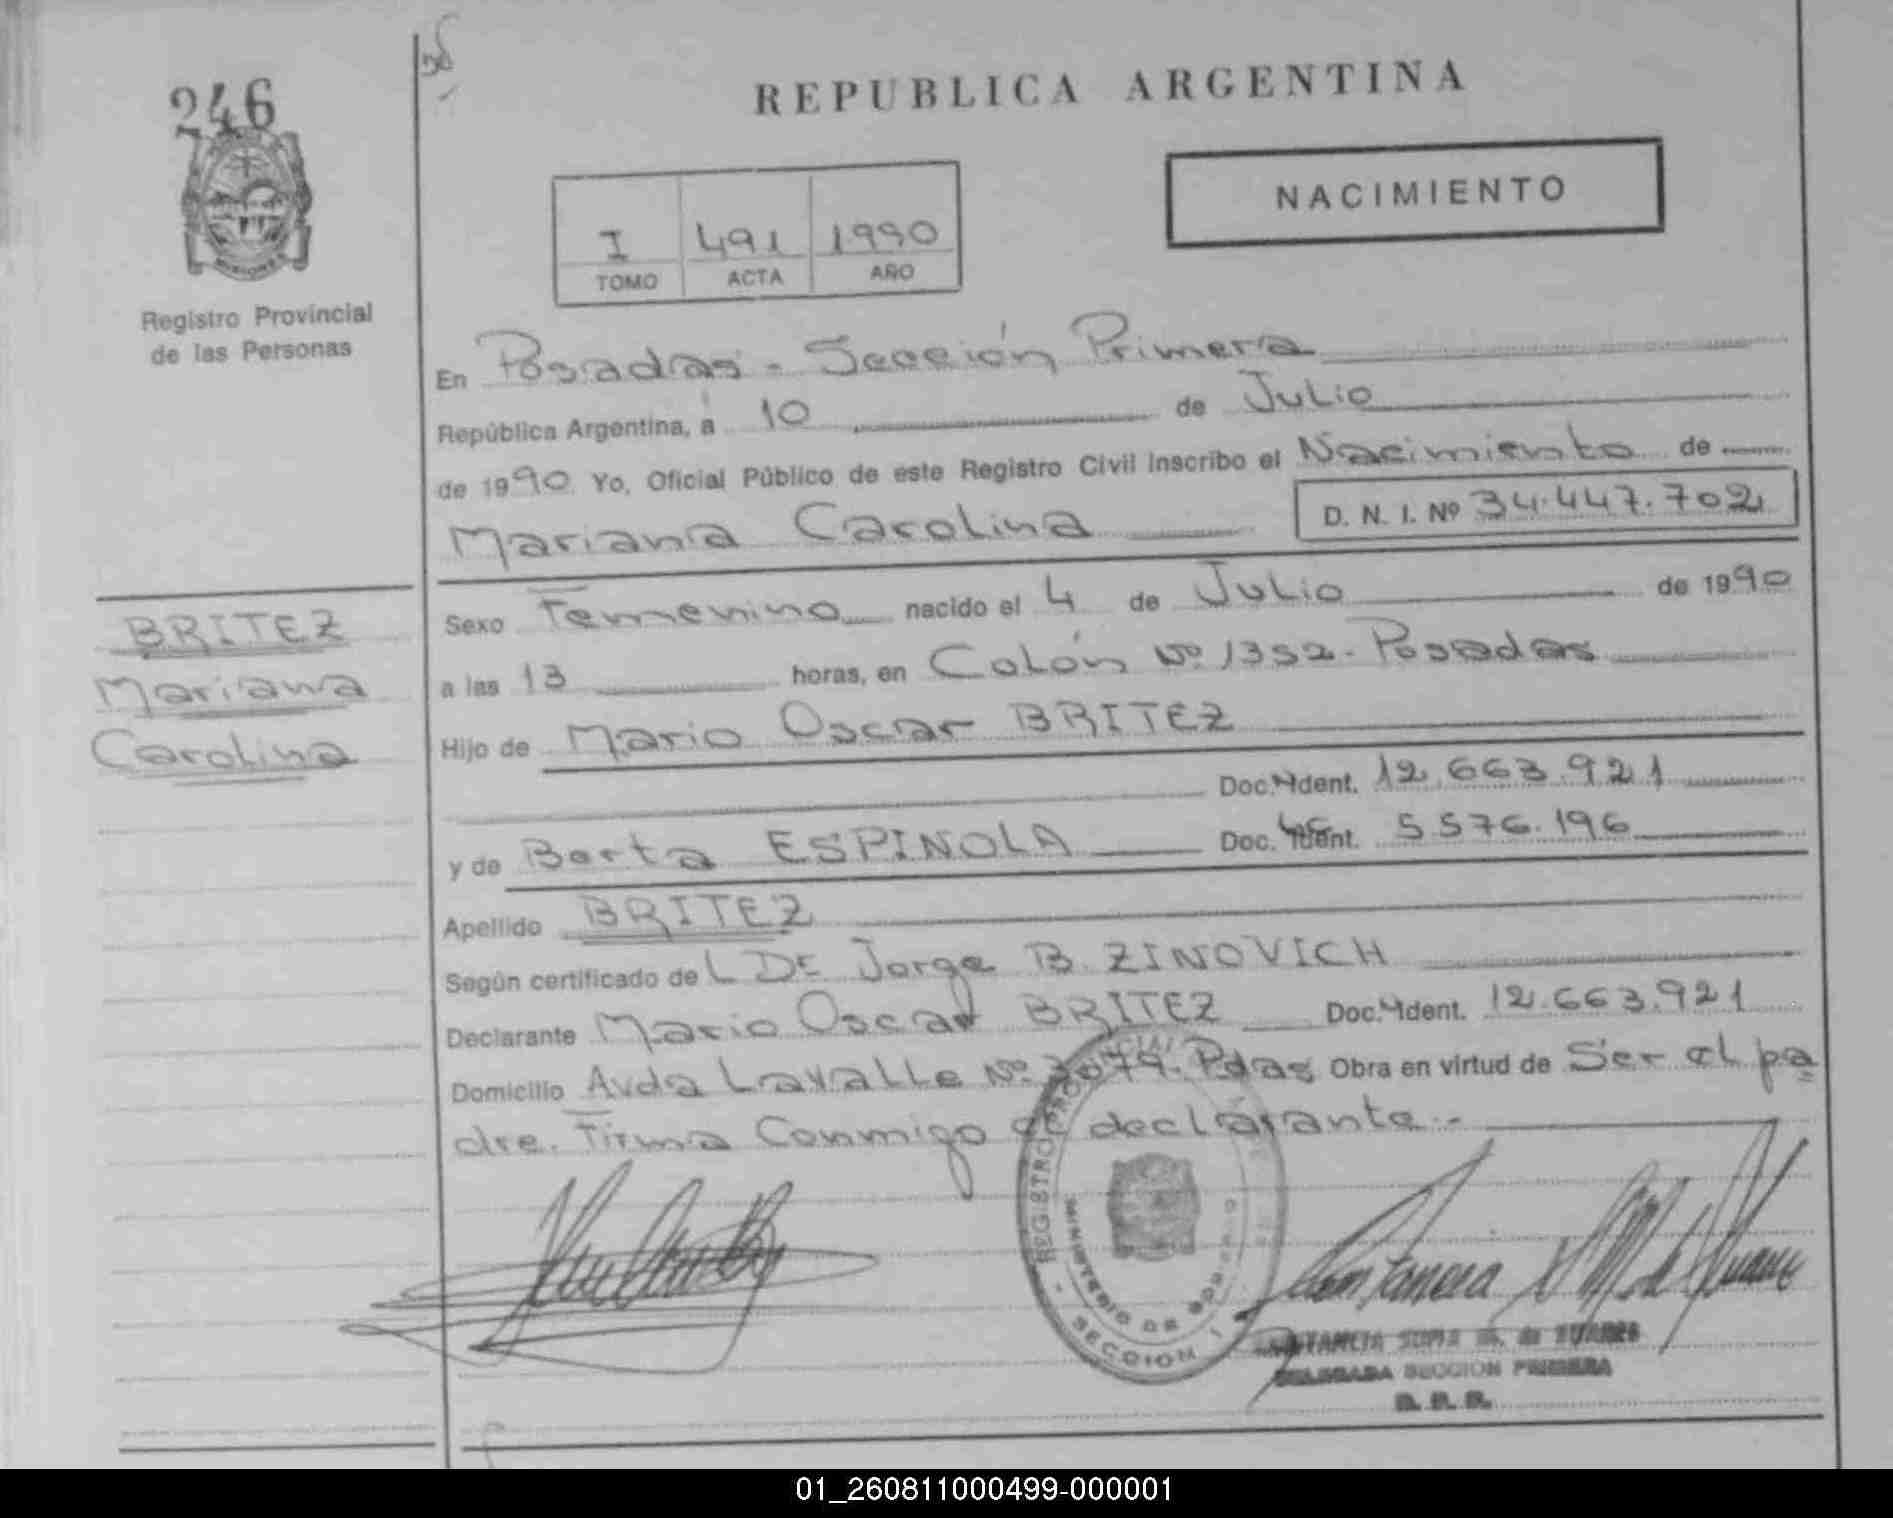 246
MISIONES
Registro Provincial
de las Personas
REPUBLICA ARGENTINA
NACIMIENTO
I 491 1990
TOMO ACTA AÑO
En Posadas - Sección Primera
República Argentina, a 10 de Julio
de 1990 Yo, Oficial Público de este Registro Civil Inscribo el Nacimiento de
Mariana Carolina D. N. I. Nº 34.447.702
BRITEZ
Mariana
Carolina
Sexo Femenino nacido el 4 de Julio de 1990
a las 13 horas, en Colón Nº 1352 - Posadas
Hijo de Mario Oscar BRITEZ
Doc. Ident. 12.663.921
y de Berta ESPINOLA Doc. Ident. 5576.196
Apellido BRITEZ
Según certificado de L Dr Jorge B. ZINOVICH
Declarante Mario Oscar BRITEZ Doc. Ident. 12.663.921
Domicilio Avda Lavalle Nº 3079. Pdas Obra en virtud de Ser el pa
dre. Firma Conmigo el declarante.-
REGISTRO PROVINCIAL
MINISTERIO DE GOBIERNO
SECCION I
SOFIA M. de SUAREZ
DELEGADA SECCION PRIMERA
01_260811000499-000001